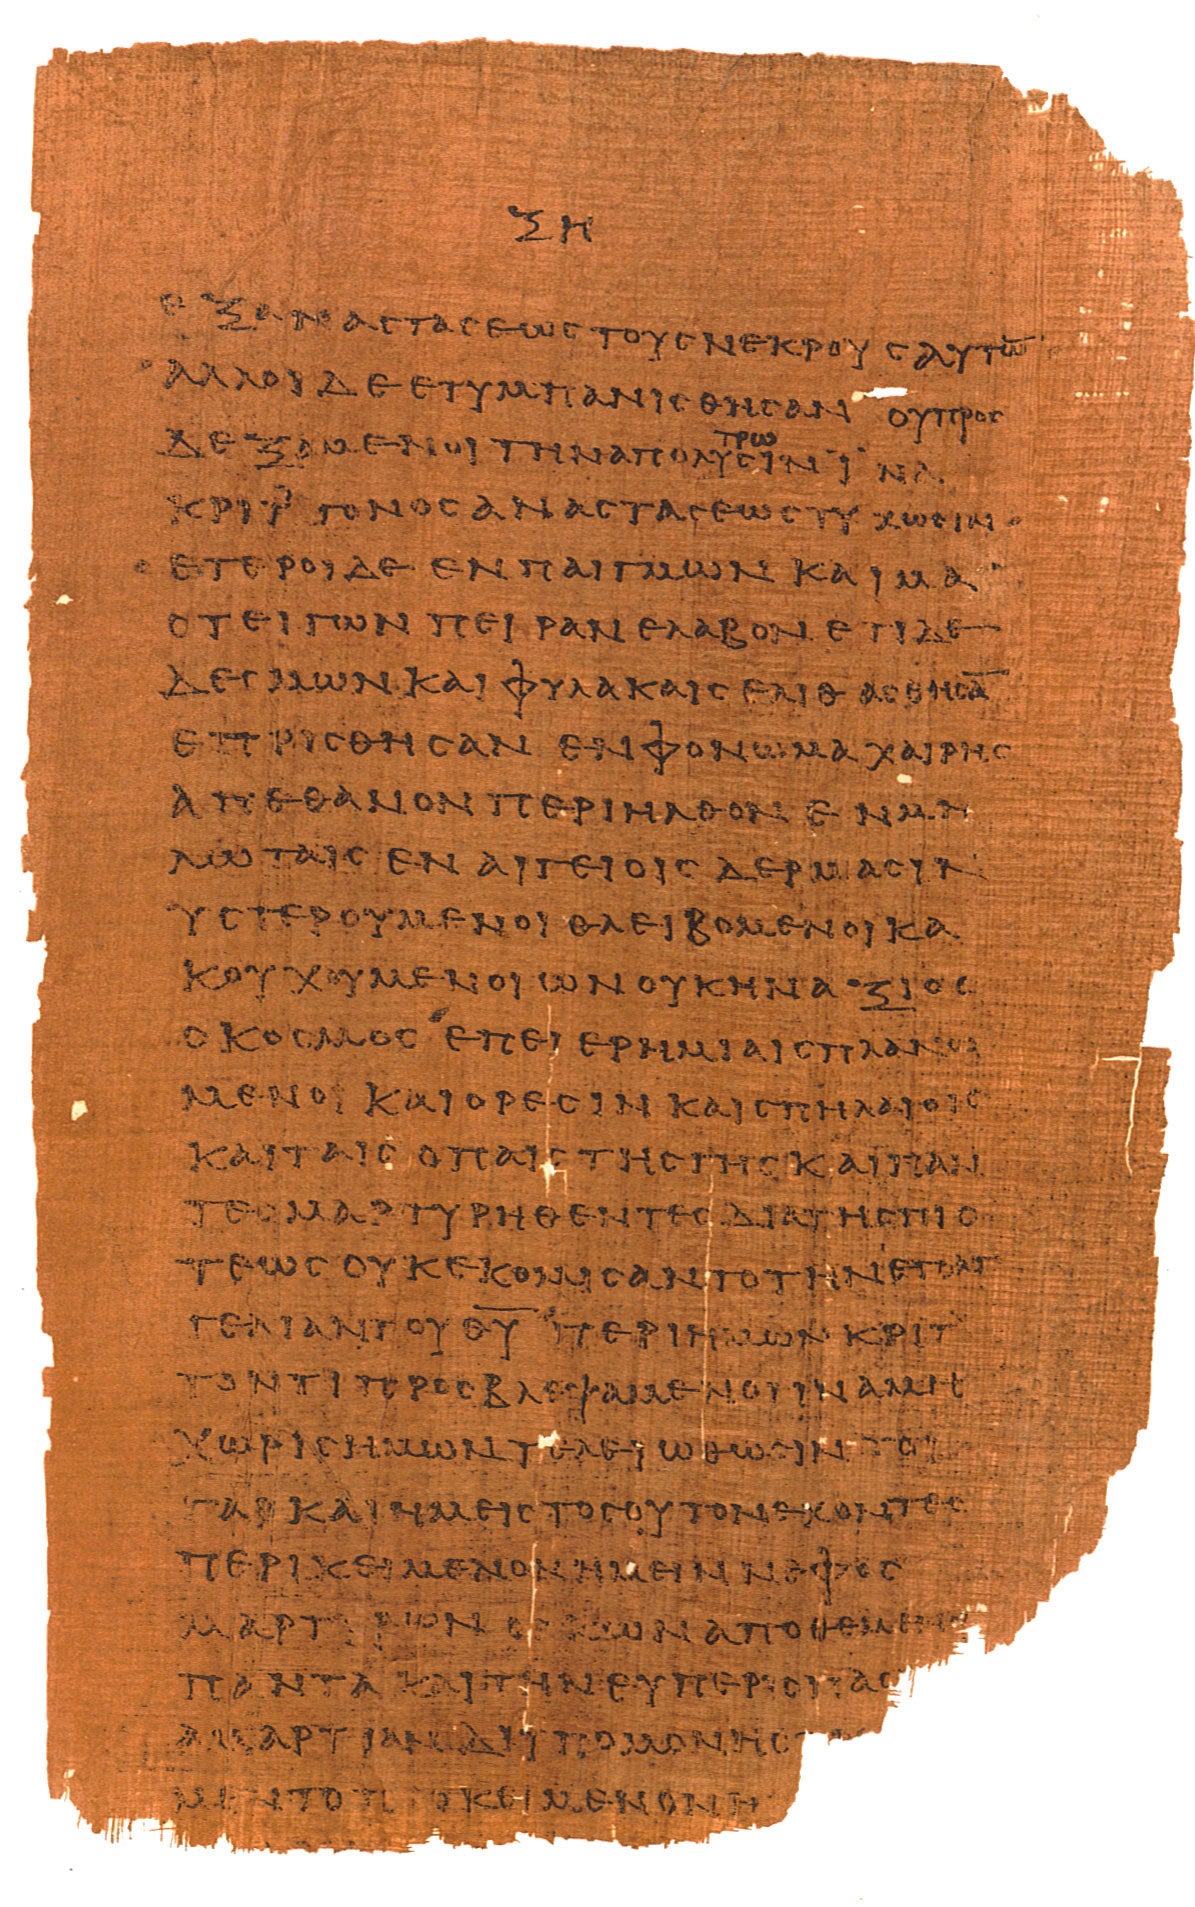 ΞΗ
ΕΞ ΑΝΑСΤΑСΕΩС ΤΟΥС ΝΕΚΡΟΥС ΑΥΤΩ̅
ΑΛΛΟΙ ΔΕ ΕΤΥΜΠΑΝΙСΘΗСΑΝ ΟΥ ΠΡΟС
ΔΕΞΑΜΕΝΟΙ ΤΗΝ ΑΠΟΛΥ`ΤΡΩ´СΙΝ ΙΝΑ
ΚΡΙΤΤΟΝΟС ΑΝΑСΤΑСΕΩС ΤΥΧΩСΙΝ
ΕΤΕΡΟΙ ΔΕ ΕΝΠΑΙΓΜΩΝ ΚΑΙ ΜΑ
СΤΕΙΓΩΝ ΠΕΙΡΑΝ ΕΛΑΒΟΝ ΕΤΙ ΔΕ
ΔΕСΜΩΝ ΚΑΙ ΦΥΛΑΚΑΙС ΕΛΙΘΑСΘΗСΑ̅
ΕΠΡΙСΘΗСΑΝ ΕΝ ΦΟΝΩ ΜΑΧΑΙΡΗС
ΑΠΕΘΑΝΟΝ ΠΕΡΙΗΛΘΟΝ ΕΝ ΜΗ
ΛΩΤΑΙС ΕΝ ΑΙΓΕΙΟΙС ΔΕΡΜΑСΙΝ
ΥСΤΕΡΟΥΜΕΝΟΙ ΘΛΕΙΒΟΜΕΝΟΙ ΚΑ
ΚΟΥΧΟΥΜΕΝΟΙ ΩΝ ΟΥΚ ΗΝ ΑΞΙΟС
Ο ΚΟСΜΟС ΕΠΕΙ ΕΡΗΜΙΑΙС ΠΛΑΝΟΙ
ΜΕΝΟΙ ΚΑΙ ΟΡΕСΙΝ ΚΑΙ СΠΗΛΑΙΟΙС
ΚΑΙ ΤΑΙС ΟΠΑΙС ΤΗС ΓΗС ΚΑΙ ΠΑΝ
ΤΕС ΜΑΡΤΥΡΗΘΕΝΤΕС ΔΙΑ ΤΗС ΠΙС
ΤΕΩС ΟΥΚ ΕΚΟΜΙСΑΝΤΟ ΤΗΝ ΕΠΑΓ
ΓΕΛΙΑΝ ΤΟΥ Θ̅Υ̅ ΠΕΡΙ ΗΜΩΝ ΚΡΙΤ
ΤΟΝ ΤΙ ΠΡΟСΒΛΕΨΑΜΕΝΟΥ ΙΝΑ ΜΗ
ΧΩΡΙС ΗΜΩΝ ΤΕΛΕΙΩΘΩСΙΝ ΤΟΙ
ΓΑΡ ΚΑΙ ΗΜΕΙС ΤΟСΟΥΤΟΝ ΕΧΟΝΤΕС
ΠΕΡΙΚΕΙΜΕΝΟΝ ΗΜΕΙΝ ΝΕΦΟС
ΜΑΡΤΥΡΩΝ ΑΠΟΘΕΜΕΝΟΙ
ΠΑΝΤΑ ΚΑΙ ΤΗΝ ΕΥΠΕΡΙСΠΑС
ΑΜΑΡΤΙΑΝ ΔΙ ΥΠΟΜΟΝΗС Τ
ΜΕΝ ΤΟΝ ΠΡΟΚΕΙΜΕΝΟΝ Η